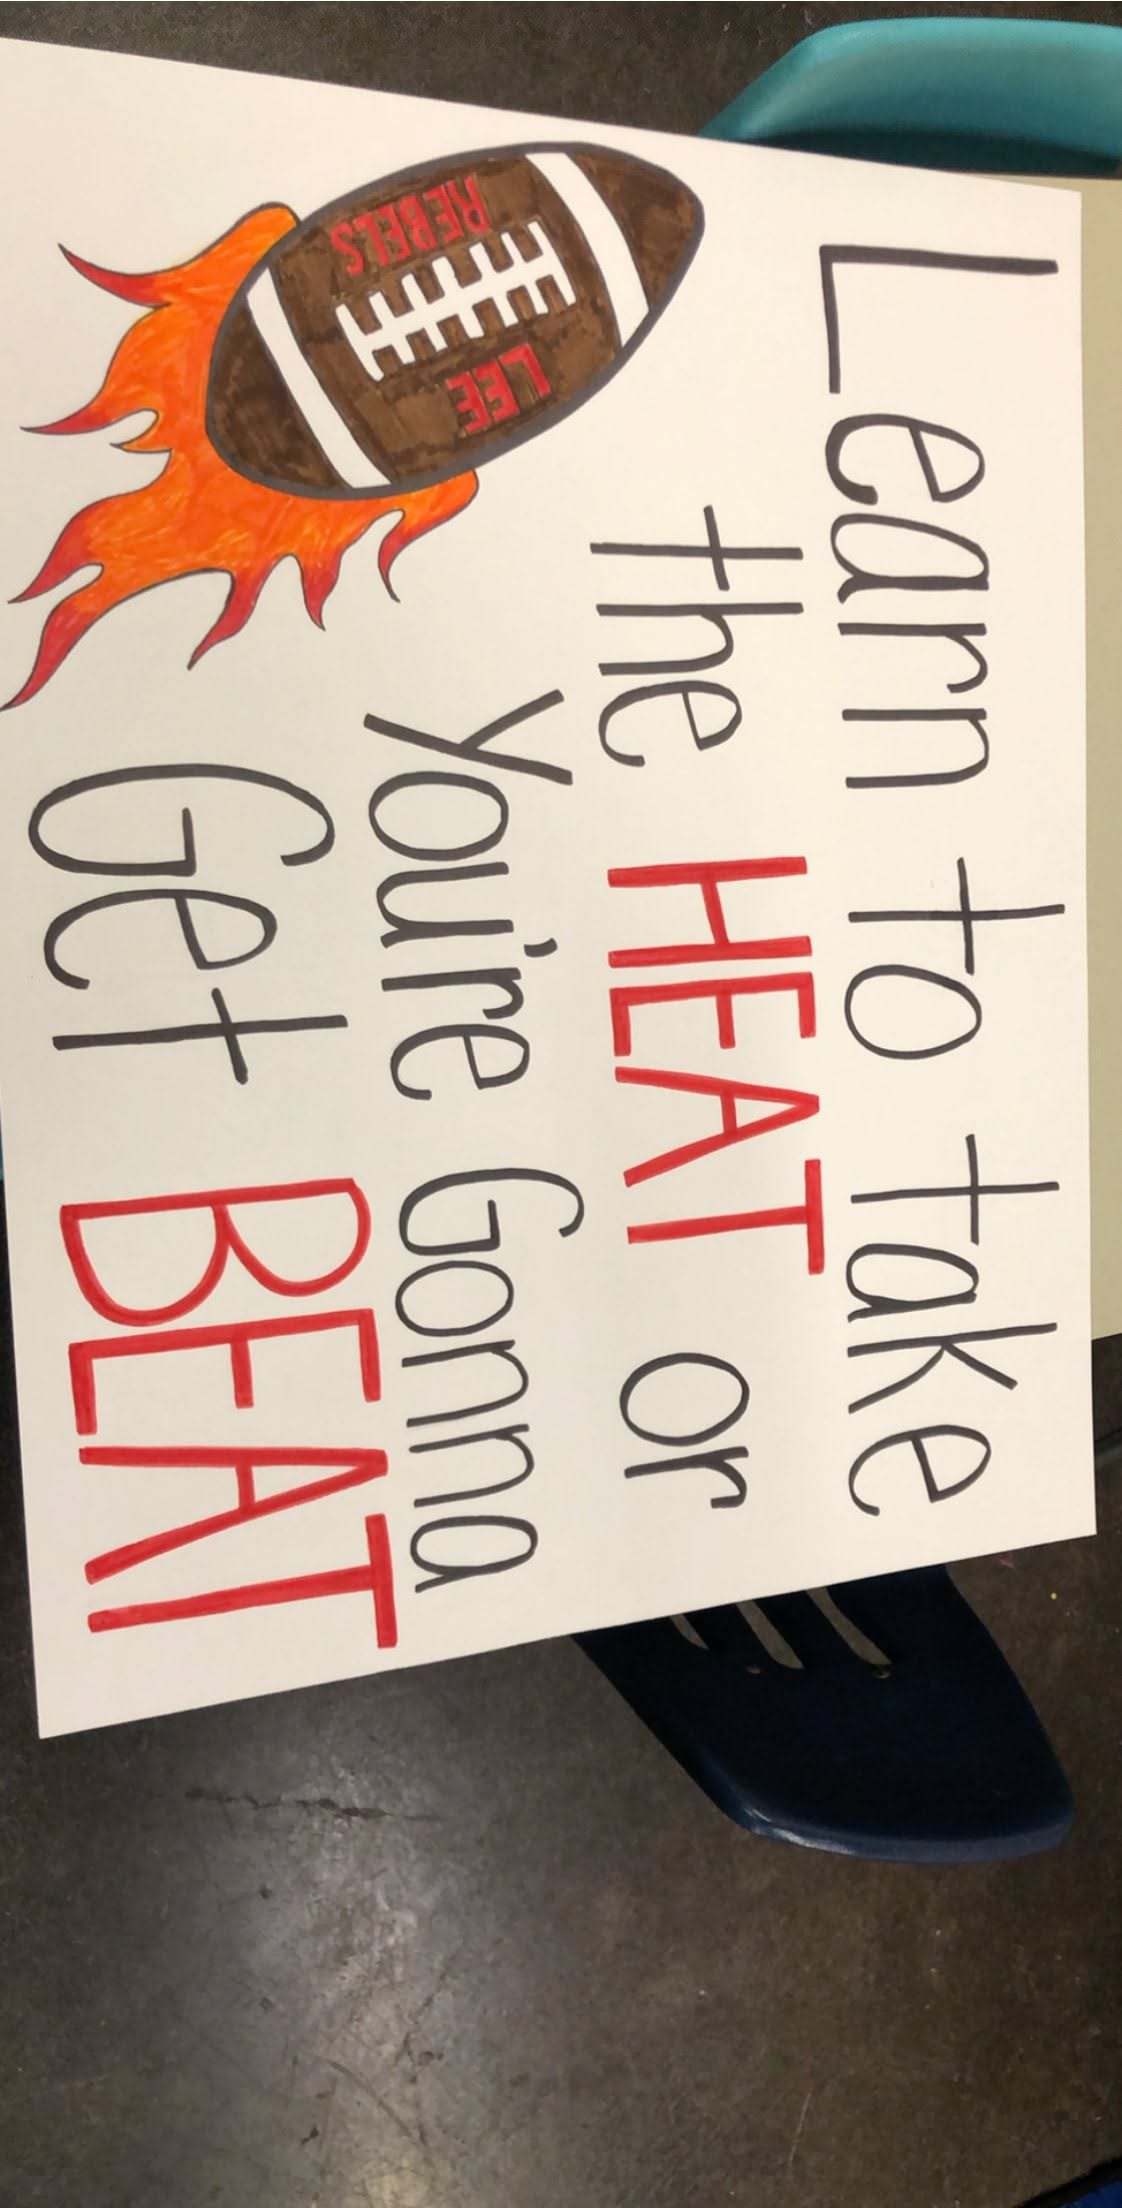 Learn to take
the HEAT or
You're Gonna
Get BEAT
LEE
REBELS